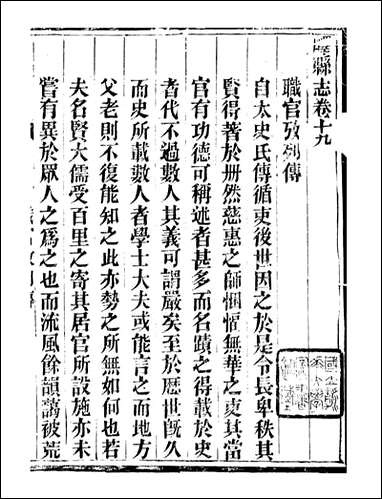 縣志卷十九
職官攷列傳
自太史氏傳循吏後世因之於是令長卑秩其
賢得著於册然慈惠之師悃愊無華之吏其當
官有功德可稱述者甚多而名蹟之得載於史
者代不過數人其義可謂嚴矣至於歷世旣久
而史所載數人者學士大夫或能言之而地方
父老則不復能知之此亦勢之所無如何也若
夫名賢大儒受百里之寄其居官所設施亦未
嘗有異於眾人之為之也而流風餘韻藹被荒